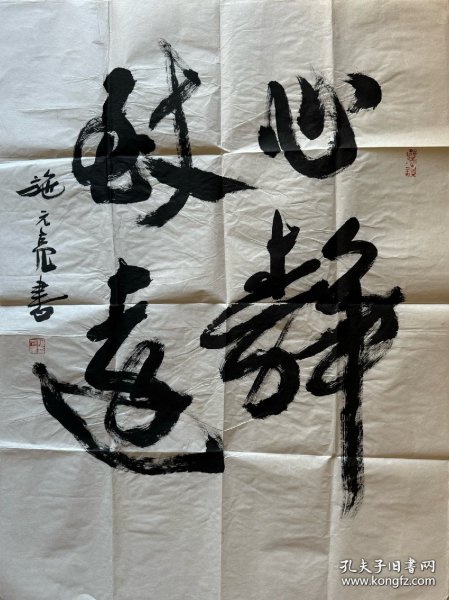 心静
致远
施元亮书
孔夫子旧书网
www.kongfz.com